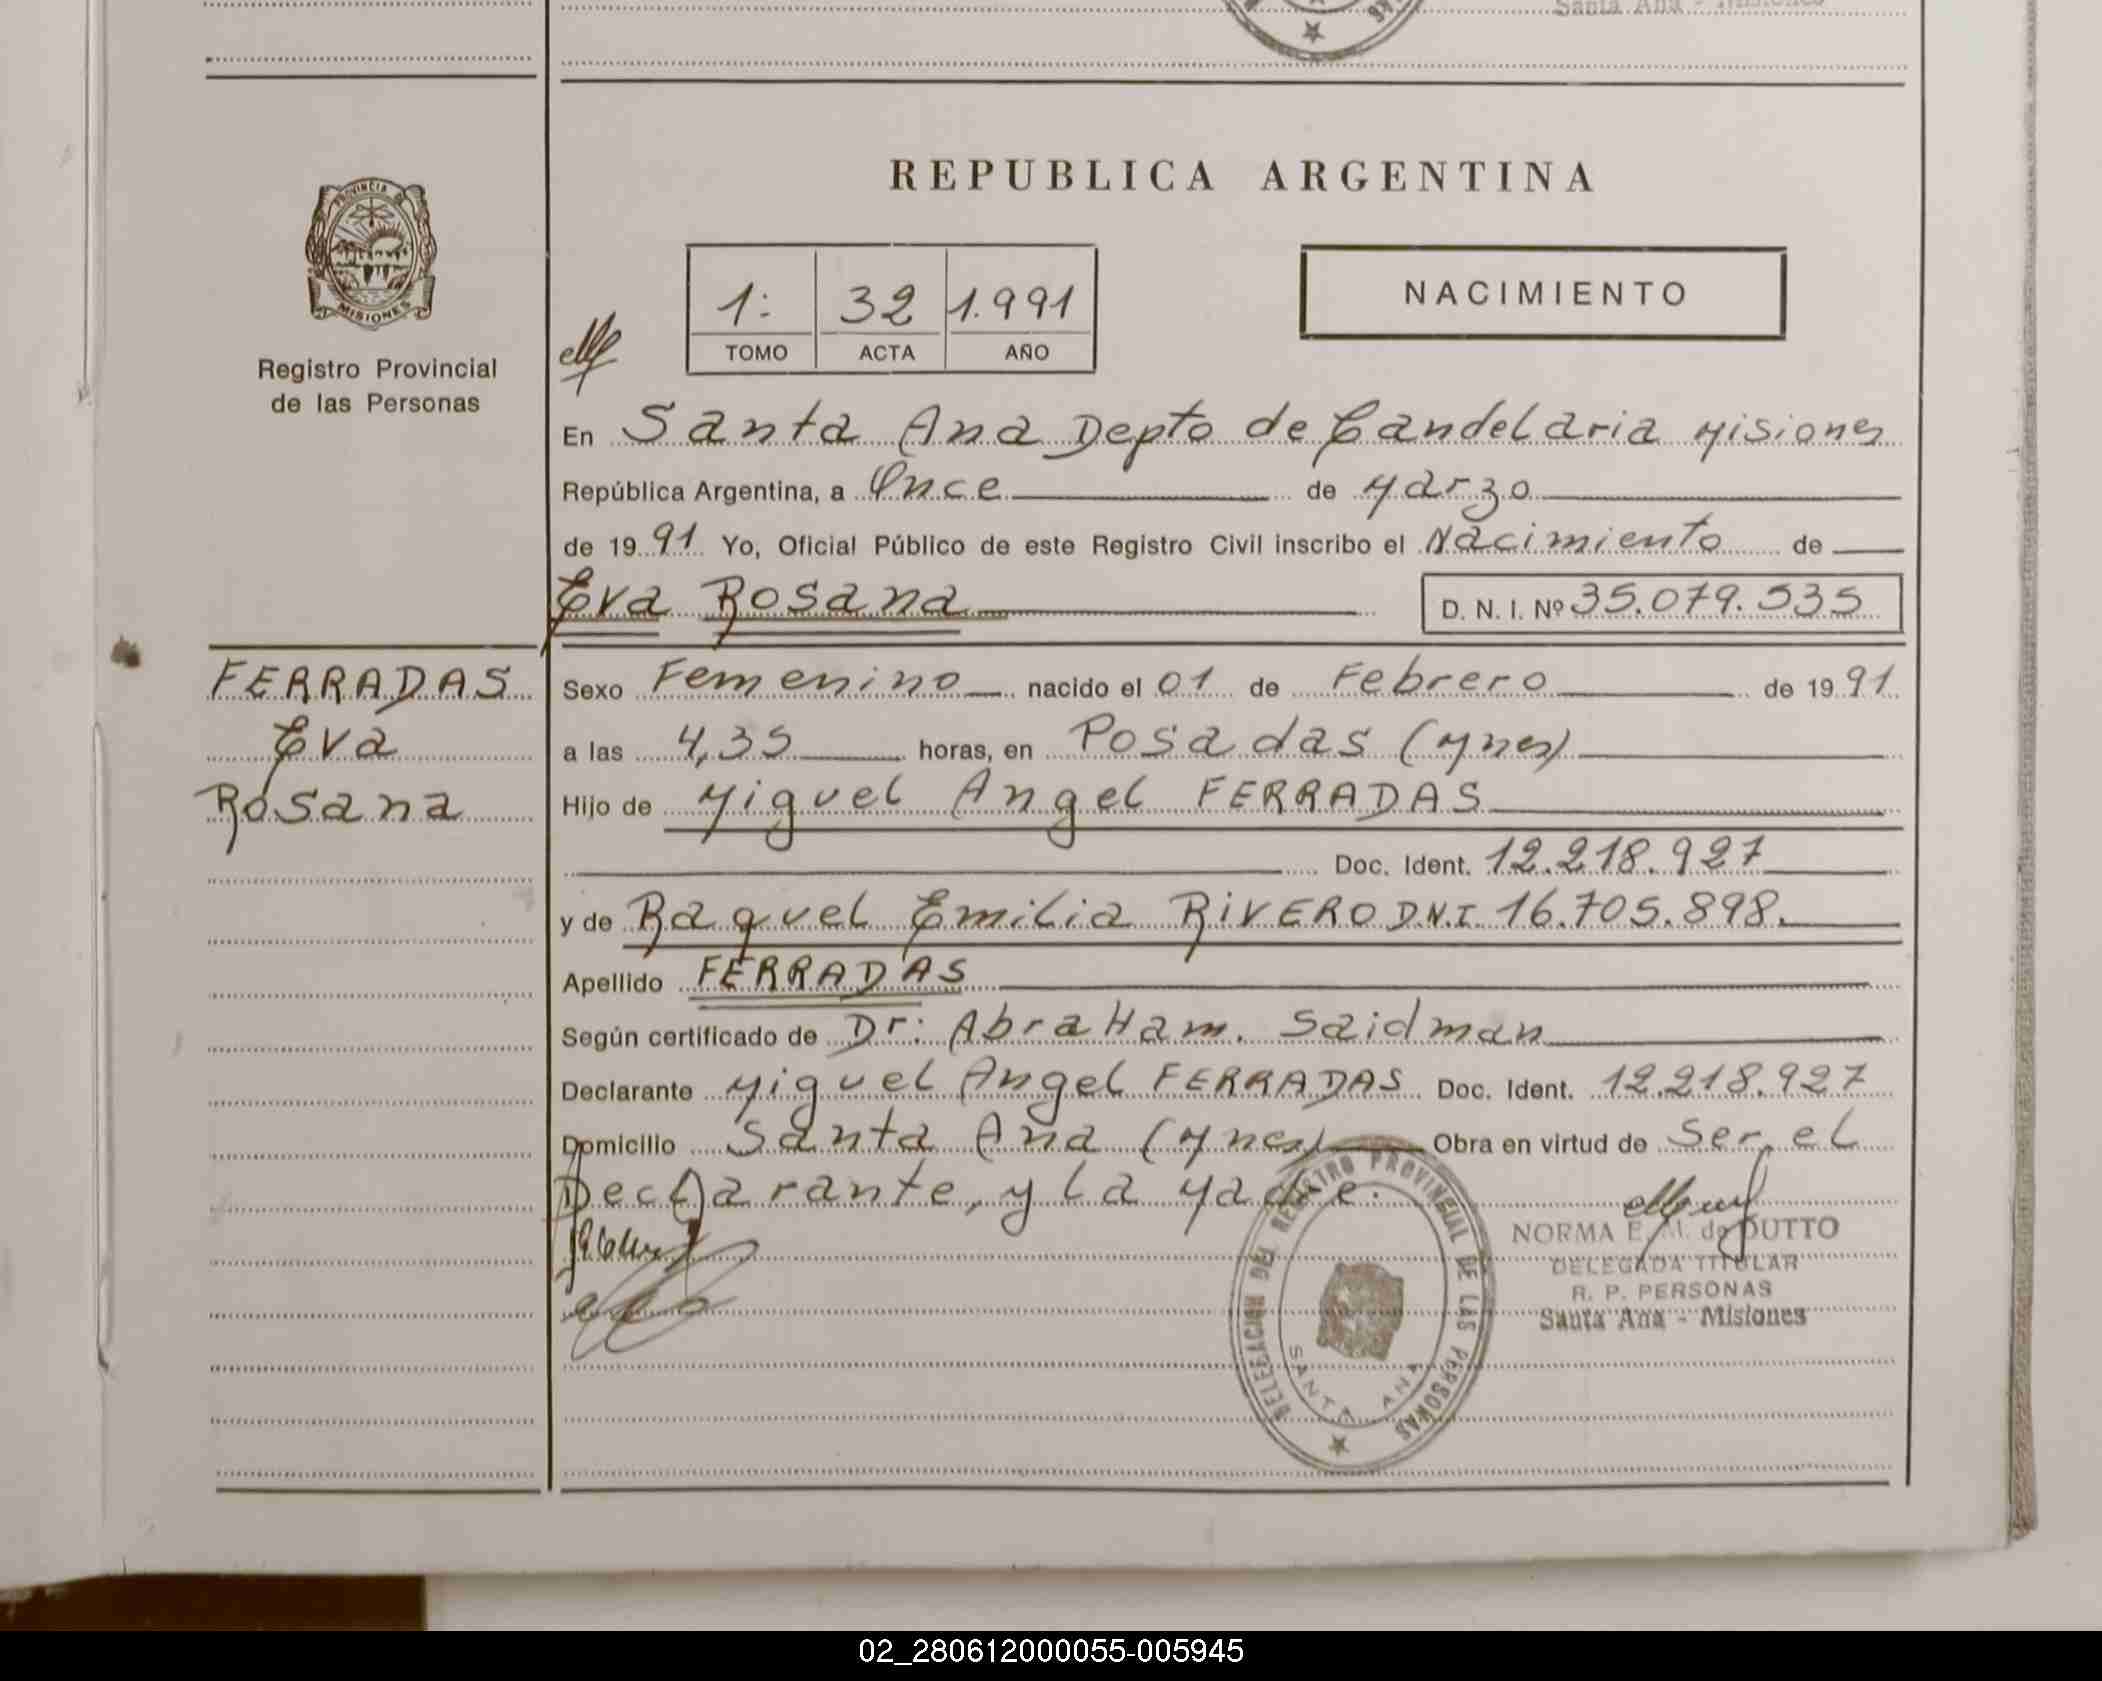 Santa Ana - Misiones
PROVINCIA DE
MISIONES
Registro Provincial
de las Personas
REPUBLICA ARGENTINA
1: 32 1.991
TOMO ACTA AÑO
NACIMIENTO
En Santa Ana Depto de Candelaria Misiones
República Argentina, a Once de Marzo
de 1991 Yo, Oficial Público de este Registro Civil inscribo el Nacimiento de
Eva Rosana D. N. I. Nº 35.079.535
FERRADAS
Eva
Rosana
Sexo Femenino nacido el 01 de Febrero de 1991
a las 4,35 horas, en Posadas (Mnes)
Hijo de Miguel Angel FERRADAS
Doc. Ident. 12.218.927
y de Raquel Emilia RIVERO D.N.I. 16.705.898.
Apellido FERRADAS
Según certificado de Dr: AbraHam. Saidman
Declarante Miguel Angel FERRADAS Doc. Ident. 12.218.927
Domicilio Santa Ana (Mnes) Obra en virtud de Ser, el
Declarante, y La Madre.
DELEGACION DEL REGISTRO PROVINCIAL DE LAS PERSONAS
SANTA ANA
NORMA E. M. de DUTTO
DELEGADA TITULAR
R. P. PERSONAS
Santa Ana - Misiones
02_280612000055-005945